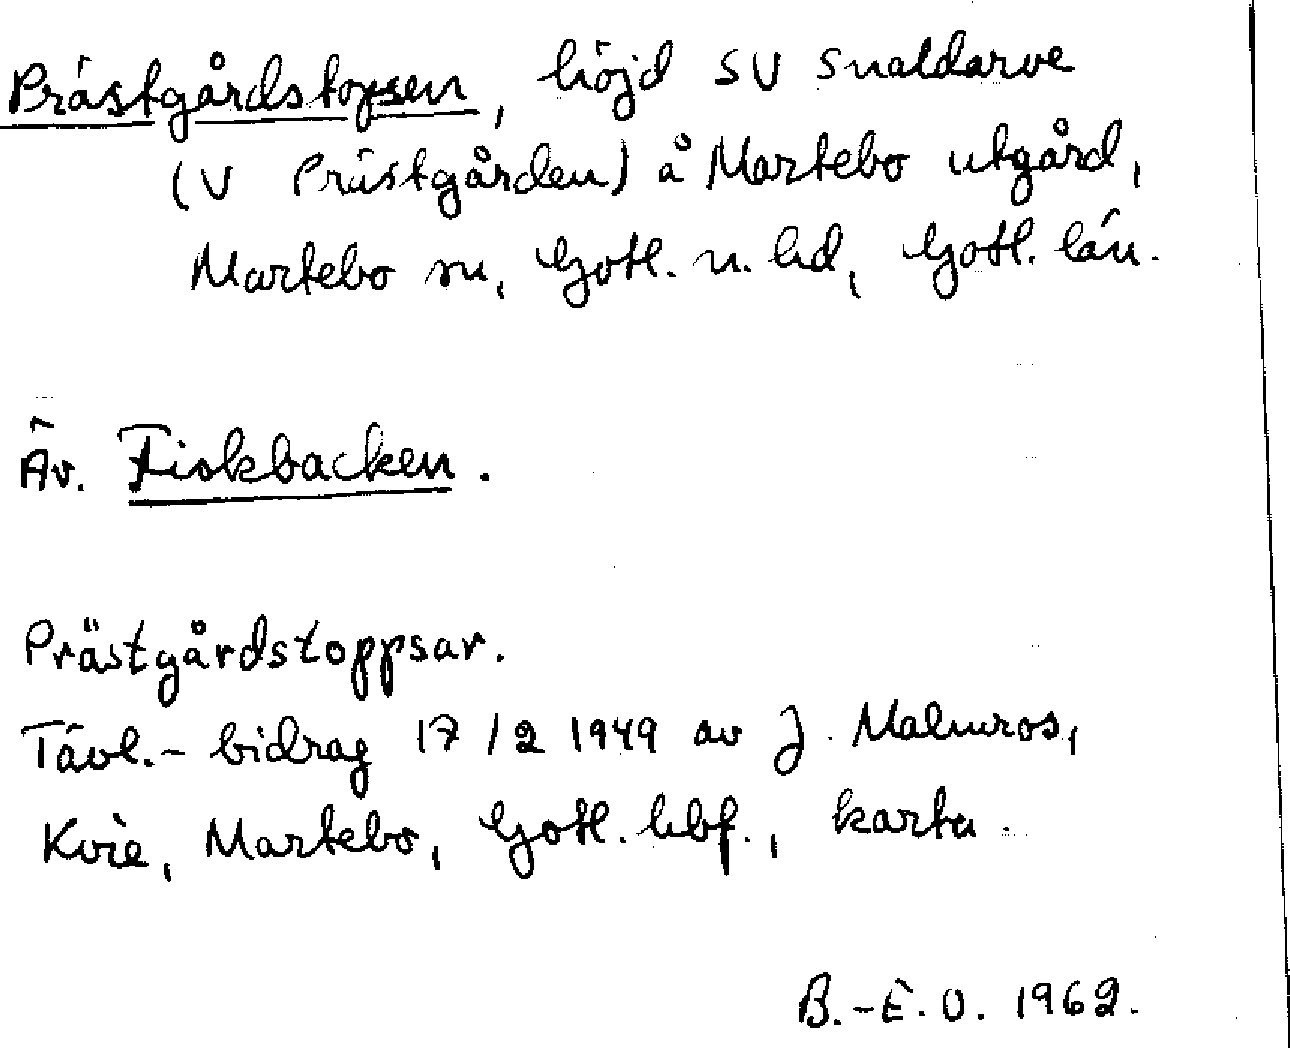 Prästgårdstopsen, höjd SV Snaldarve
(V Prästgården) å Martebo utgård,
Martebo sn, Gotl. n. hd, Gotl. län.
Äv. Fiskbacken.
Prästgårdstoppsar.
Tävl.-bidrag 17/2 1949 av J. Malmros,
Kvie, Martebo, Gotl. hbf., karta.
B.-E.O. 1962.